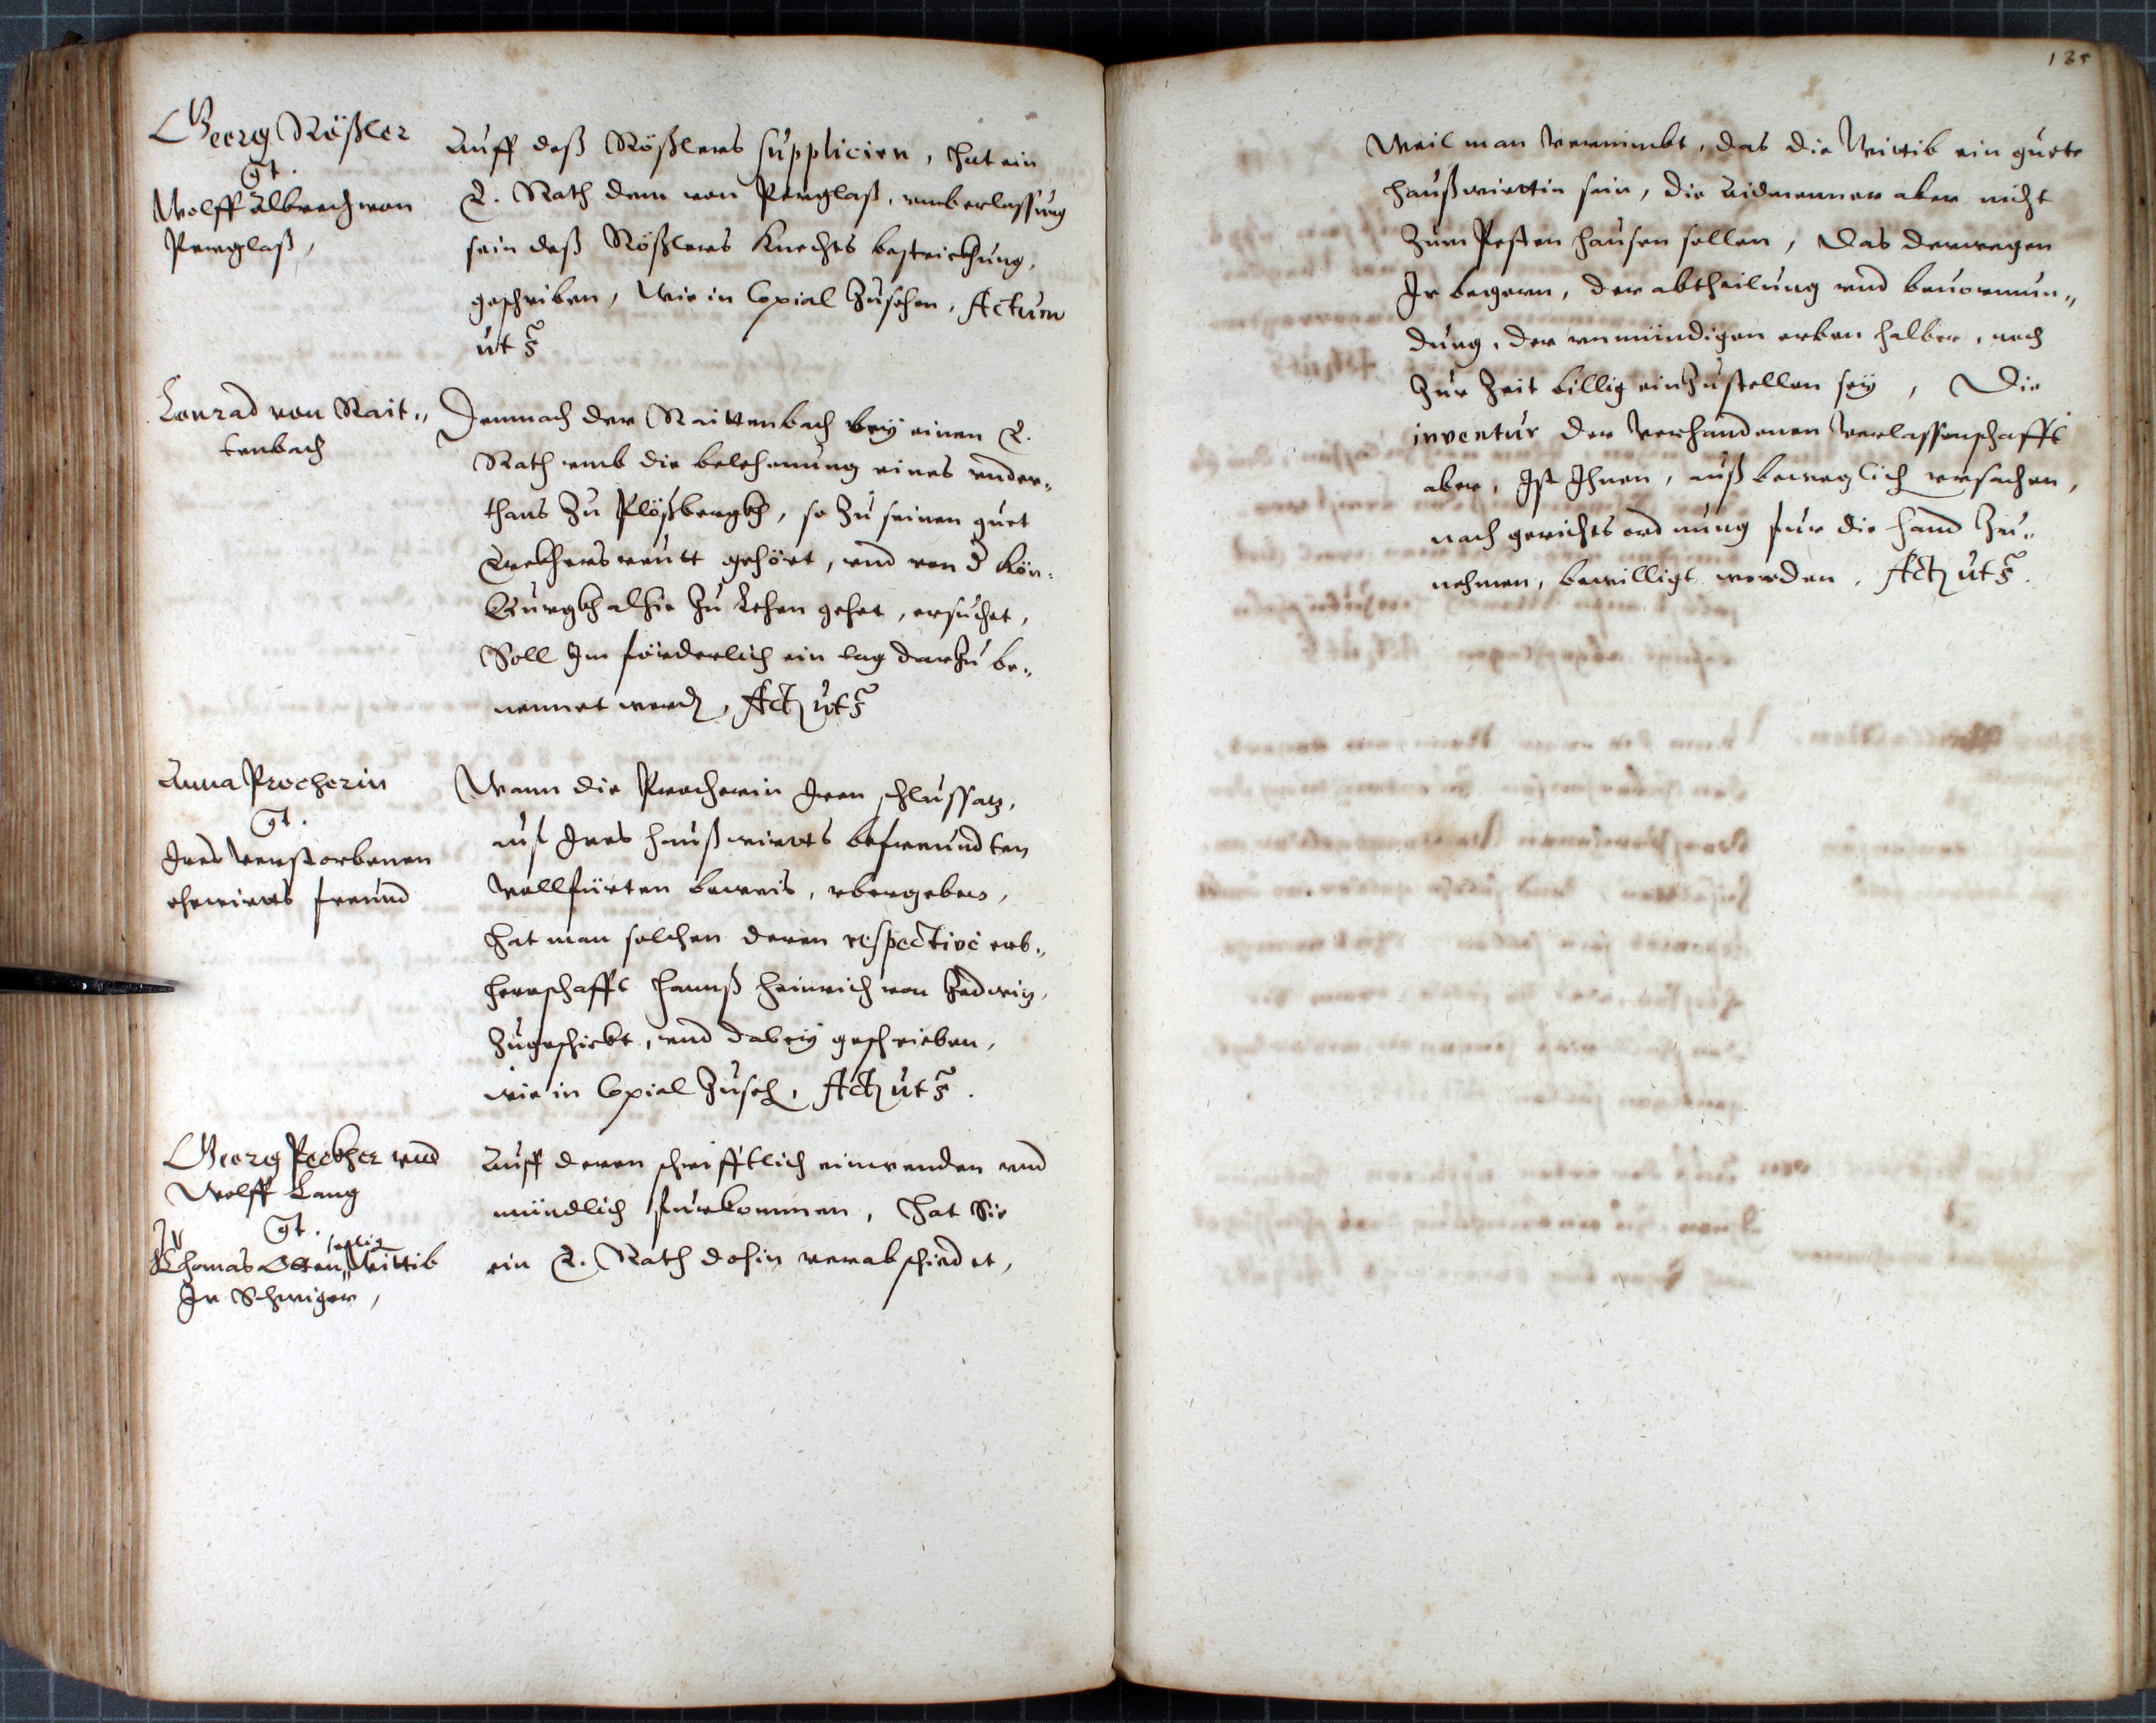 Georg Rößler
gt.
Wolff Albrech von
Perglaß,
Auff deß Rößlers suppliciern, hat ein
E. Rath dem von Perglaß, umb erlassung
sein deß Rößlers Knechts bestrickhung,
geschriben, Wie in Copial Zusehen, Actum
ut s
Conrad von Rait„
tenbach
Demnach der Raittenbach bey einen E.
Rath umb die belehnung eines under„
thans Zu Plößbergkh, so Zu seinen guet
gehört, und von d Kön:
Burgkh alhie Zu Lehen gehet, ersuchet,
Soll Im förderlich ein tag darzu be„
nennet werden, Act ut s
Anna Procherin
gt.
Ires verstorbenen
ehewirts freund
Wann die Procherin Iren schlussatz,
auf Ires haußwirts befreundten
vollfürten beweis, ubergeben,
hat man solchen deren respectivè erb„
herrschafft Hannß Heinrich von Zedwitz,
Zugeschickt, und dabey geschrieben,
wie in Copial Zusehen, Act ut s.
Georg Peckher und
Wolff Lang
gt.
Thomas Otten seelig Wittib
Ir Schwiger,
Auff deren schrifftlich einwenden und
mündlich fürkommen, hat Sie
ein E. Rath dohin verabschiedet,
135
Weil man vernimbt, das die Wittib ein guete
haußwirttin sein, die Aidmenner aber nicht
Zum Pesten hausen sollen, Das derwegen
Ir begern, der abtheilung und bevormun„
dung, der unmündigen erben halber, noch
Zur Zeit billig einzustellen sey, Die
inventur der verhandenen verlassenschafft
aber, Ist Ihnen, auß beweglich ursachen,
nach gerichts ordnung für die hand Zu„
nehmen, bewilligt worden. Act ut s.